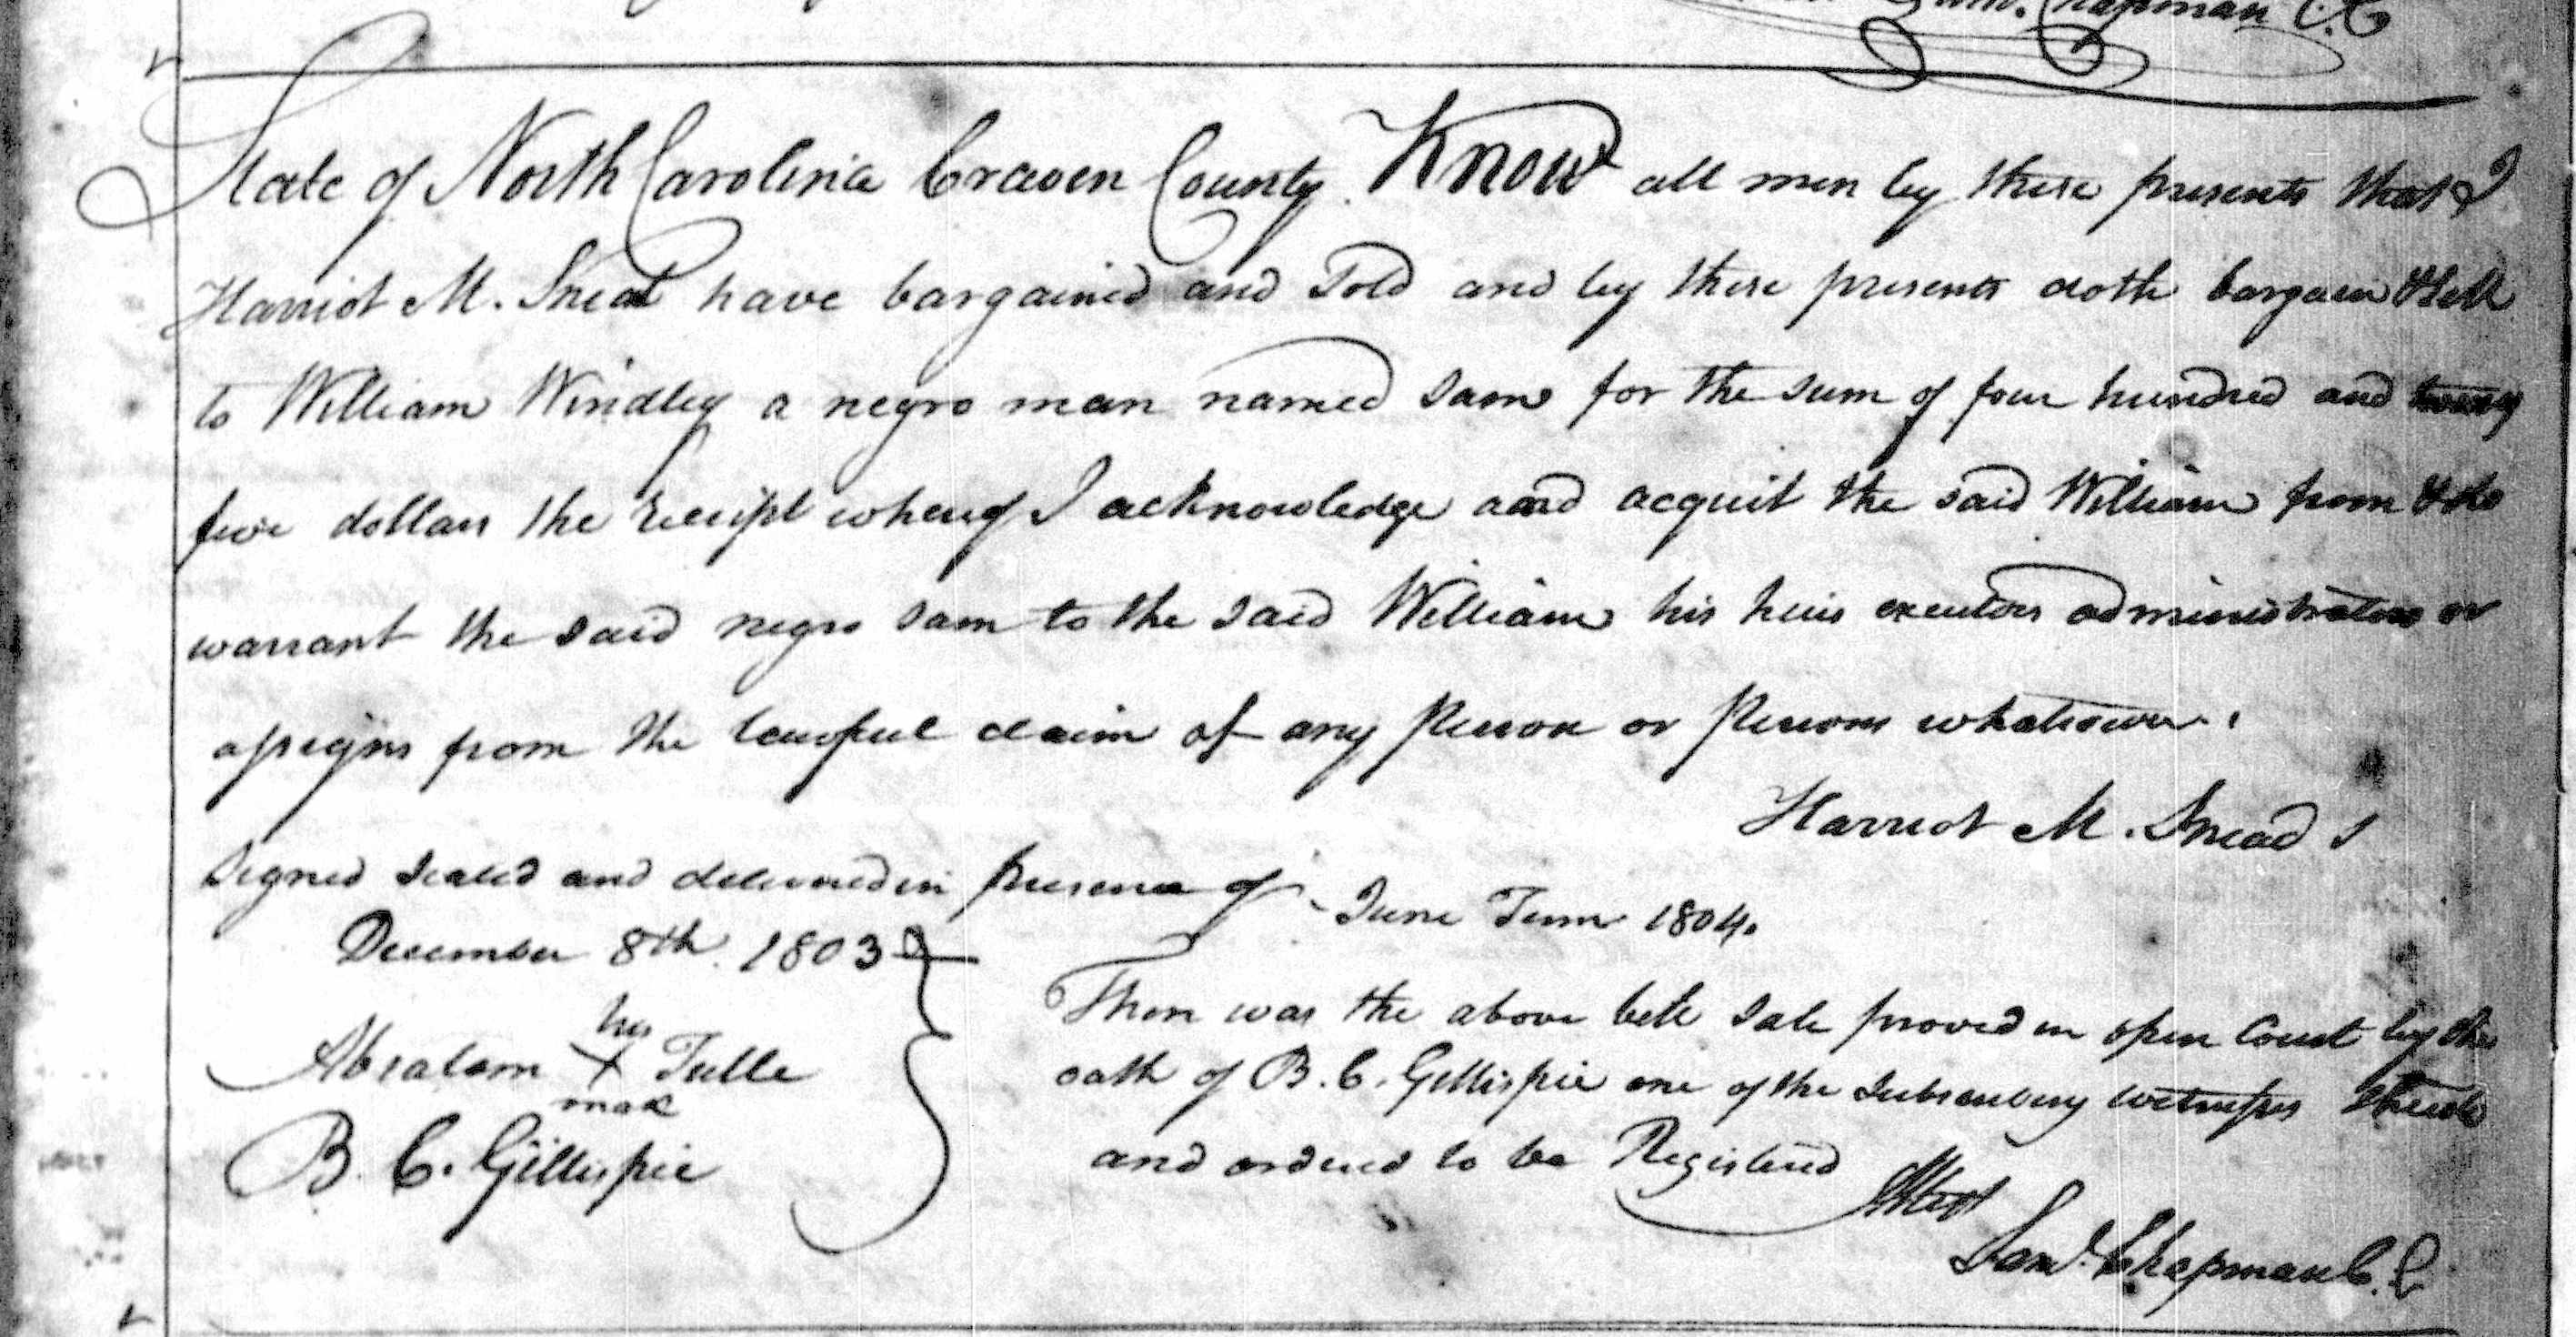 Chapman C.C
State of North Carolina Craven County. Know all men by these presents that I
Harriot M. Snead have bargained and Sold and by these presents doth bargain & sell
to William Windley a negro man named Sam for the sum of four hundred and twenty
five dollars the receipt whereof I acknowledge and acquit the said William from & do
warrant the said negro Sam to the said William his heirs executors administrators or
assigns from the lawful claim of any Person or Persons whatsoever.
Harriot M. Snead S
Signed Sealed and delivered in presence of
December 8th. 1803
his
Abraham X Tulle
mak
B. C. Gillispie
June Term 1804.
Then was the above bill Sale proved in open Court by the
oath of B. C. Gillispie one of the Subscribing witnesses thereto
and ordered to be Registered
Attest
Saml. Chapman C.C